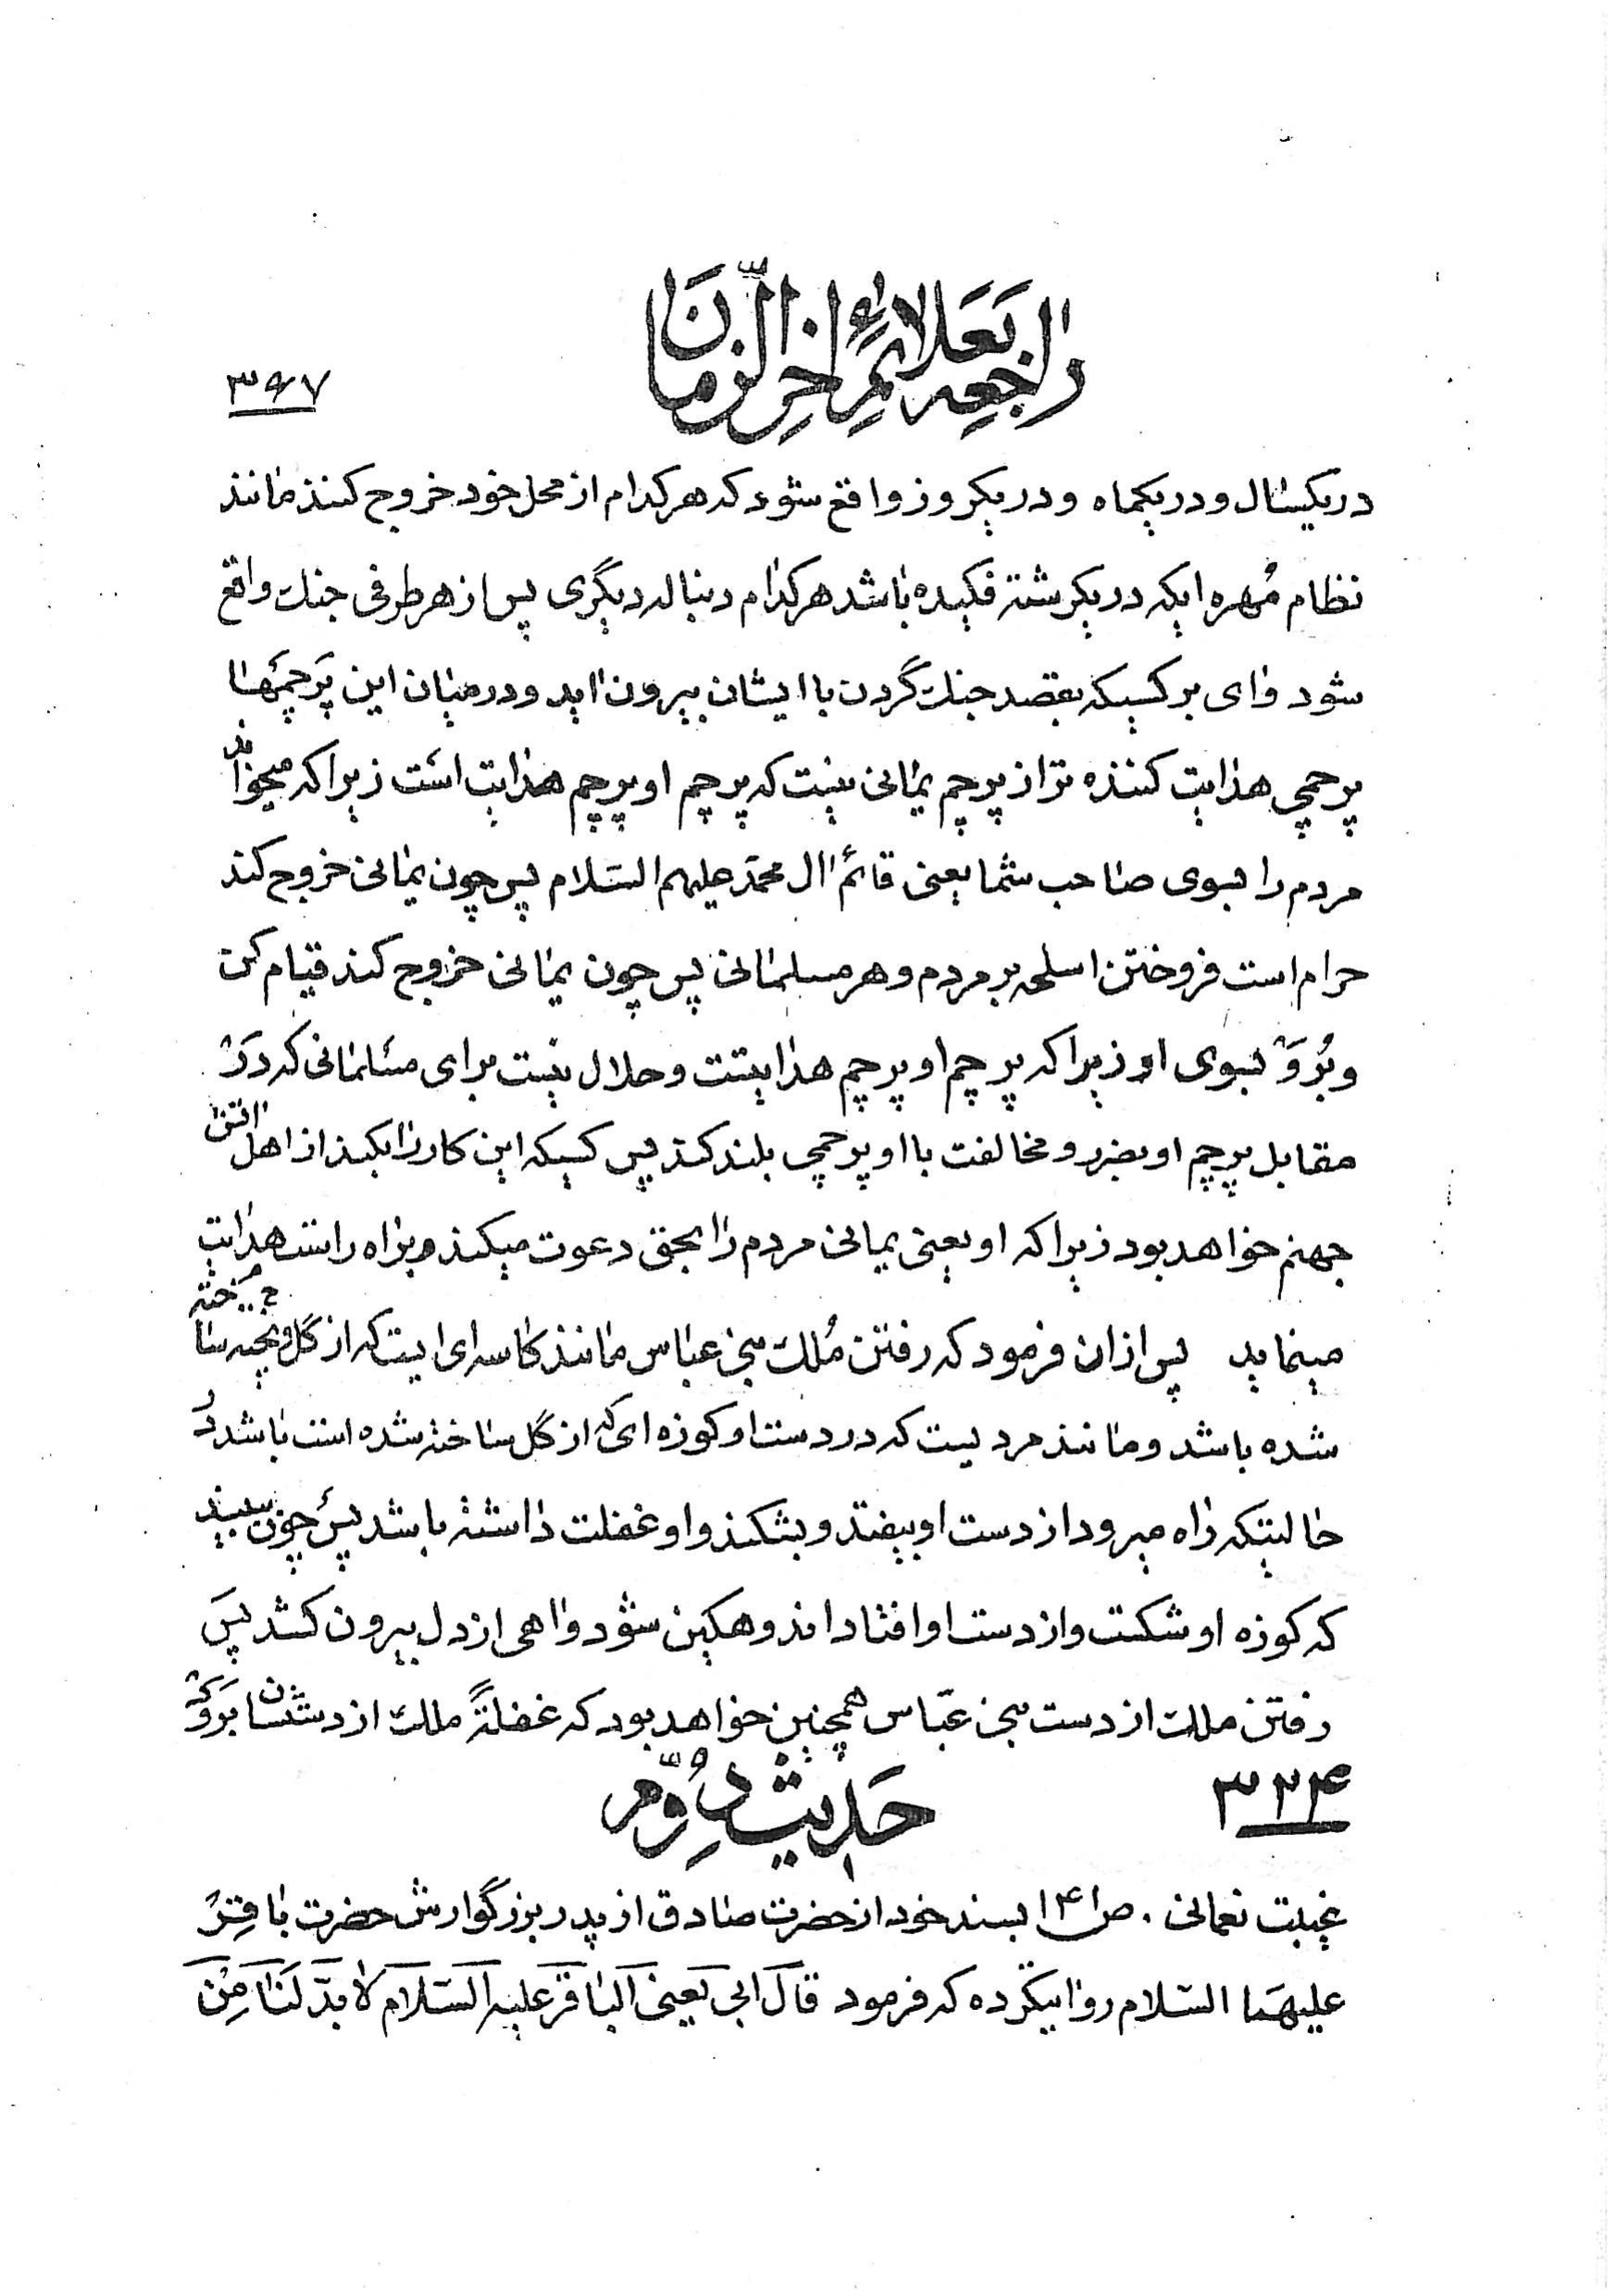 راجعه بعلائم اخر الزمان
۳۶۷
در یکسال و در یکماه و در یکروز واقع شود که هر کدام از محل خود خروج کنند مانند
نظام مُهره ایکه در یکرشته فکیده باشد هر کدام دنباله دیگری پس از هر طرفی جنك واقع
شود وای بر کسیکه بقصد جنك گردن با ایشان بیرون اید و در میان این پرچمها
پرچمی هدایت کننده تر از پرچم یمانی نیست که پرچم او پرچم هدایت است زیرا که میخواند
مردم را بسوی صاحب شما یعنی قائم ال محمد علیهم السلام پس چون یمانی خروج کند
حرام است فروختن اسلحه بر مردم و هر مسلمانی پس چون یمانی خروج کند قیام کن
و بُروَ بسوی او زیرا که پرچم او پرچم هدایتست و حلال نیست برای مسلمانی که در
مقابل پرچم او بضرر و مخالفت با او پرچمی بلند کند پس کسیکه این کار را بکند از اهل اتش
جهنم خواهد بود زیرا که او یعنی یمانی مردم را بحق دعوت میکند و براه راست هدایت
مینماید پس از ان فرمود که رفتن مُلك بنی عباس مانند کاسه ای است که از گل و پخته ساخته
شده باشد و مانند مردیست که در دست او کوزه ای که از گل ساخته شده است باشد در
حالیتکه راه میرود از دست او بیفتد و بشکند و او غفلت داشته باشد پس چون ببیند
که کوزه او شکست و از دست او افتاد اندوهکین شود و اهی از دل بیرون کشد پس
رفتن ملك از دست بنی عبّاس همچنین خواهد بود که غفلةً ملك از دستشان برود
۳۲۴ حَدیث دوُّم
غیبت نعمانی ۰ ص ۱۴۱ بسند خود از حضرت صادق از پدر بزرگوارش حضرت باقر
علیهما السلام روایتکرده که فرمود قالَ ابی یَعنی الباقرَ علیه السَّلام لا بدَّ لَنا مِن